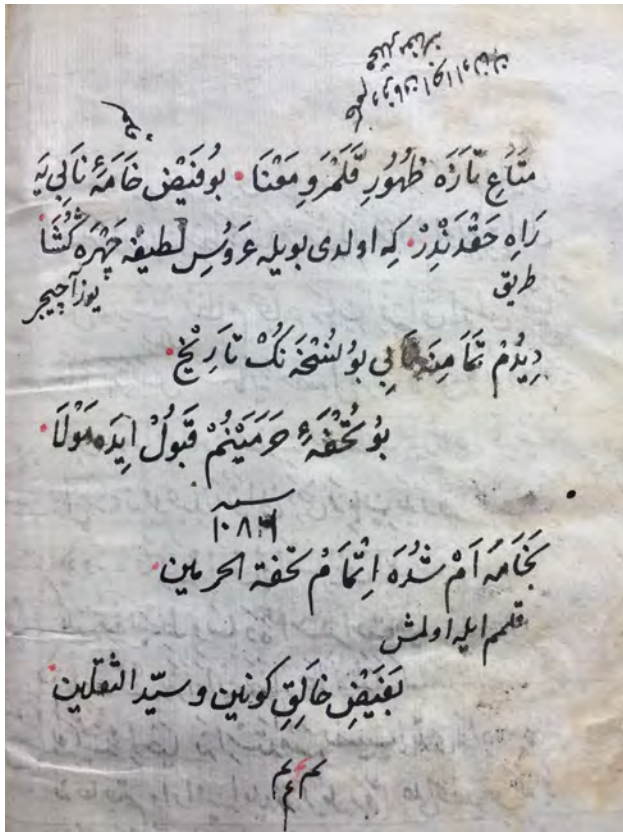 متاع تازه ظهور قلمرو معنا • بو فيض خامۀ نابى يه
راه حقدندر • كه اولدى بويله عروس لطيفه چهره كشا
طريق
يوز آچيجر
ديدم تمامنه نابى بو نسخه نك تاريخ •
بو تحفۀ حرمينم قبول ايده مولا •
سنه
بخامه ام شده اتمام تحفة الحرمين •
قلمم ايله اولمش
بفيض خالق كونين و سيد الثقلين •